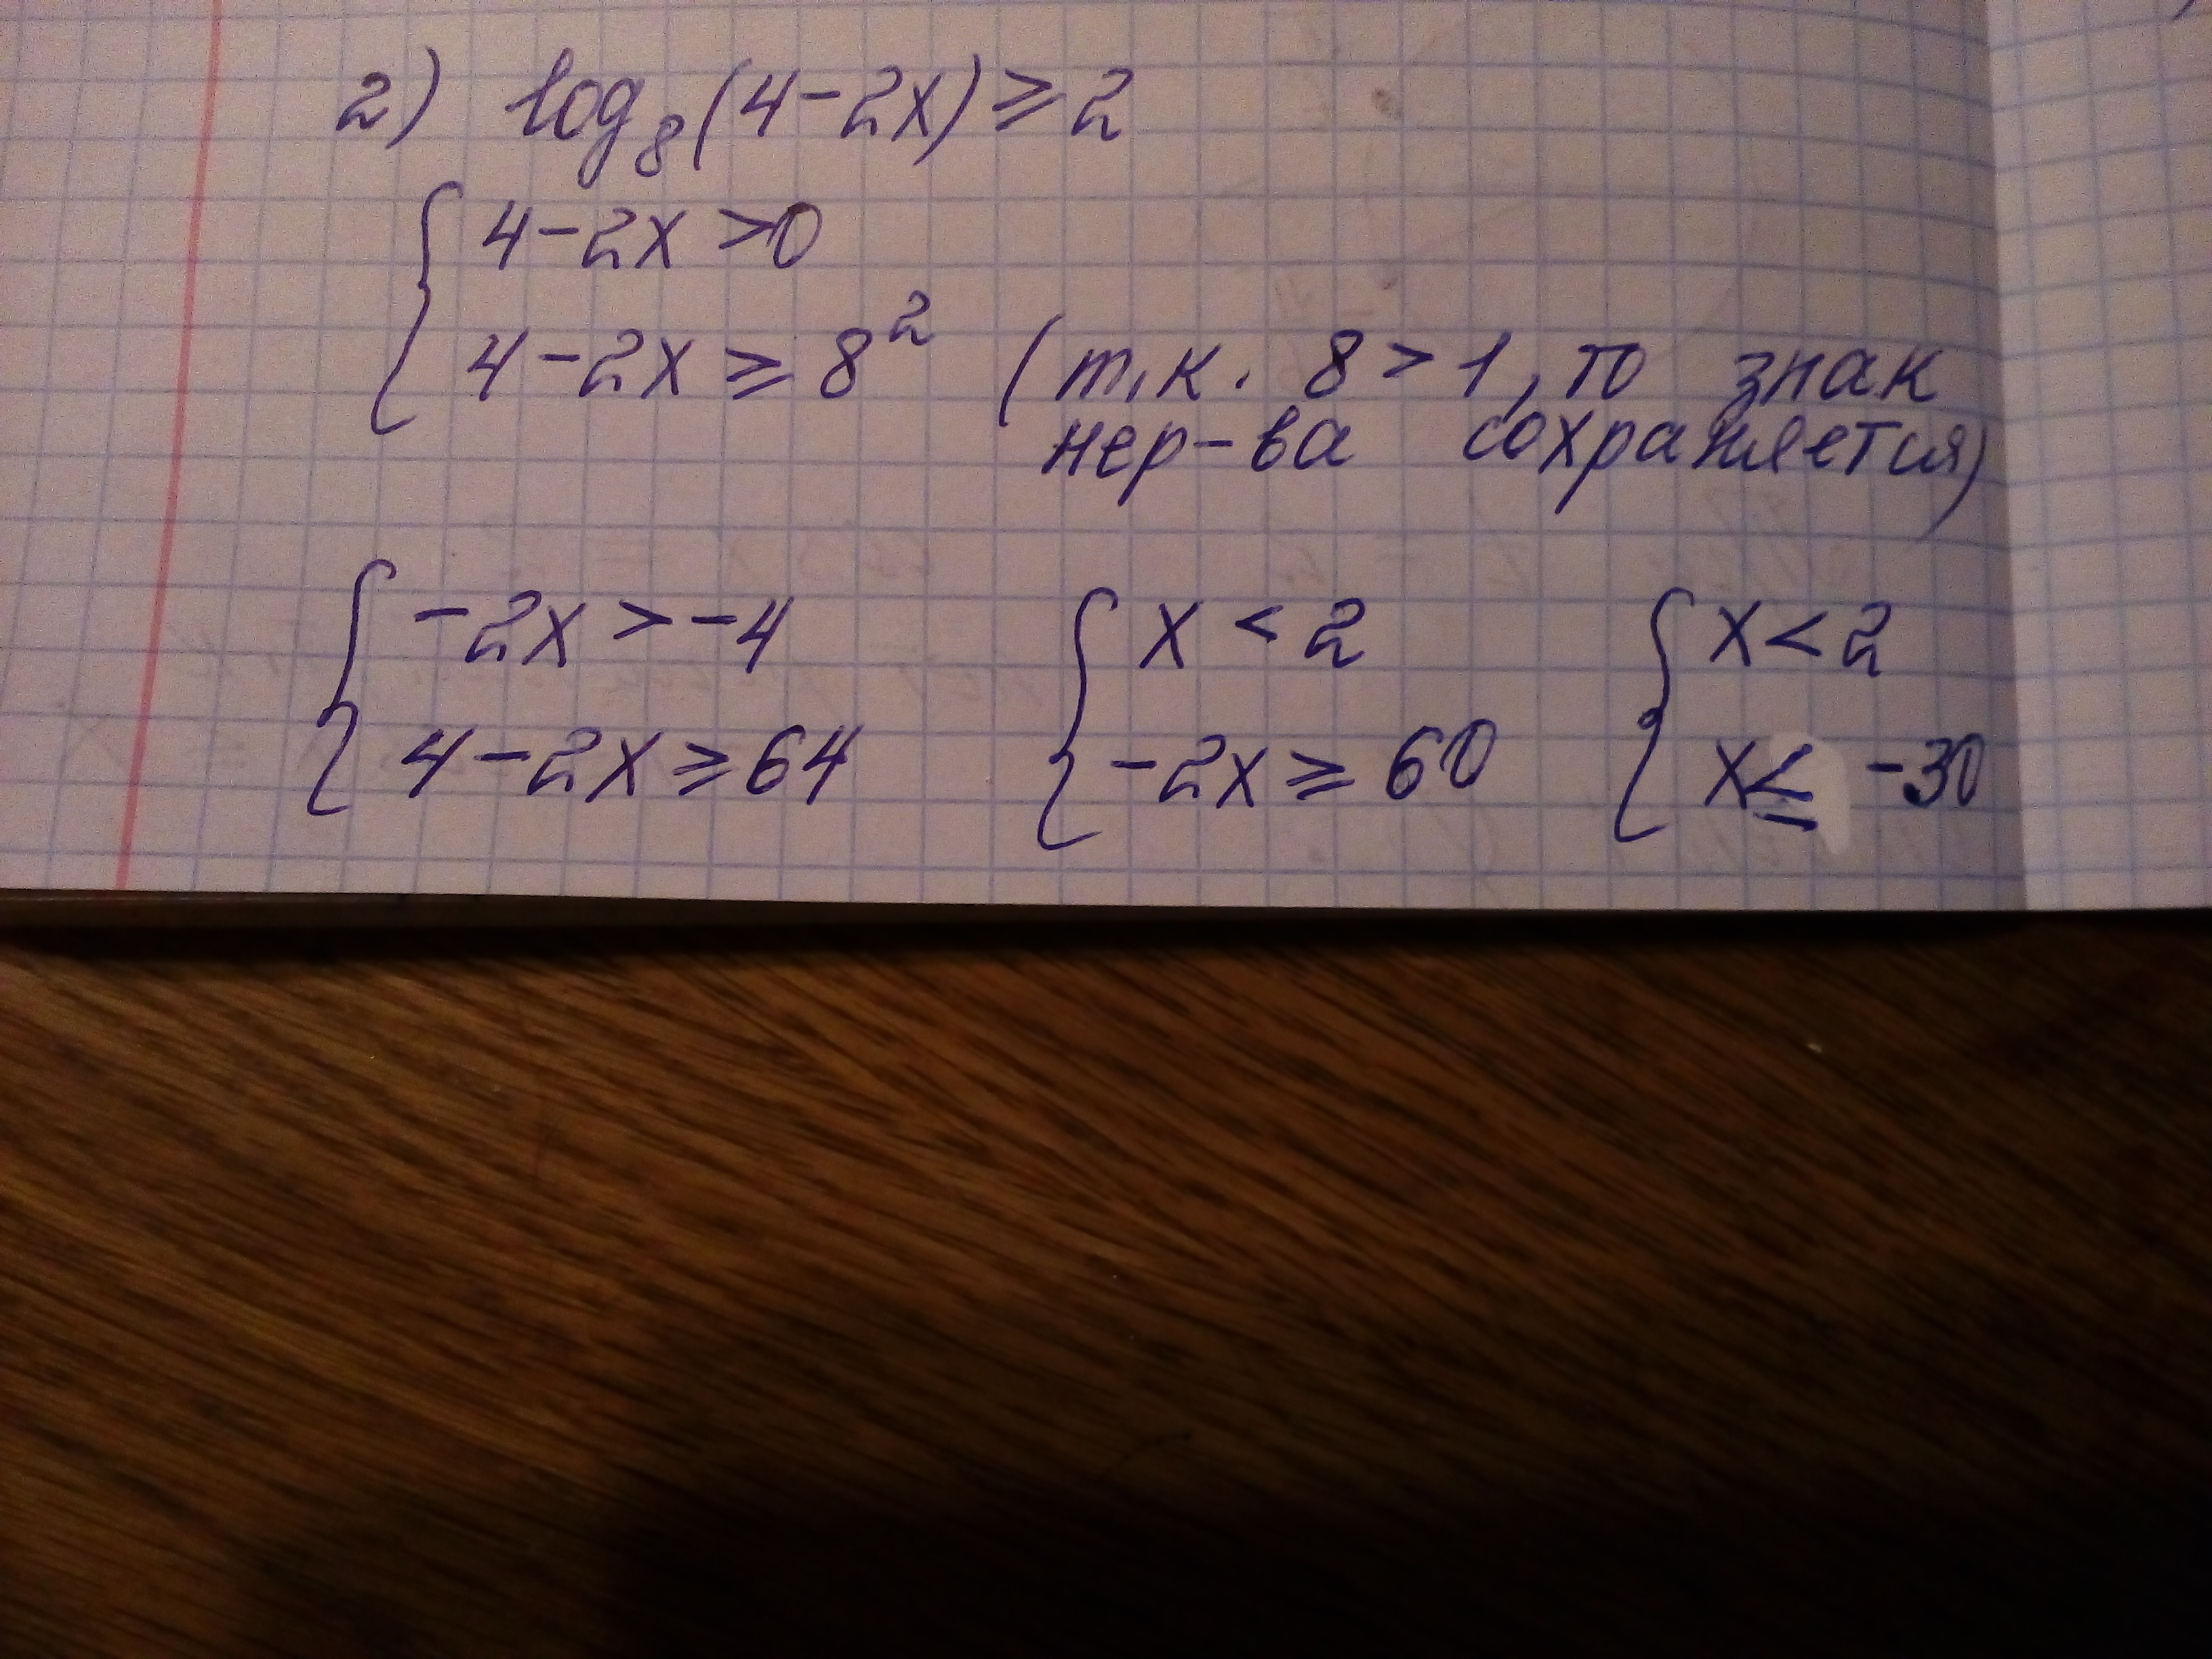 2) log₈(4-2x)≥2
4-2x>0
4-2x≥8² (т.к. 8>1, то знак
нер-ва сохраняется)
-2x>-4 x<2 x<2
4-2x≥64 -2x≥60 x≤-30